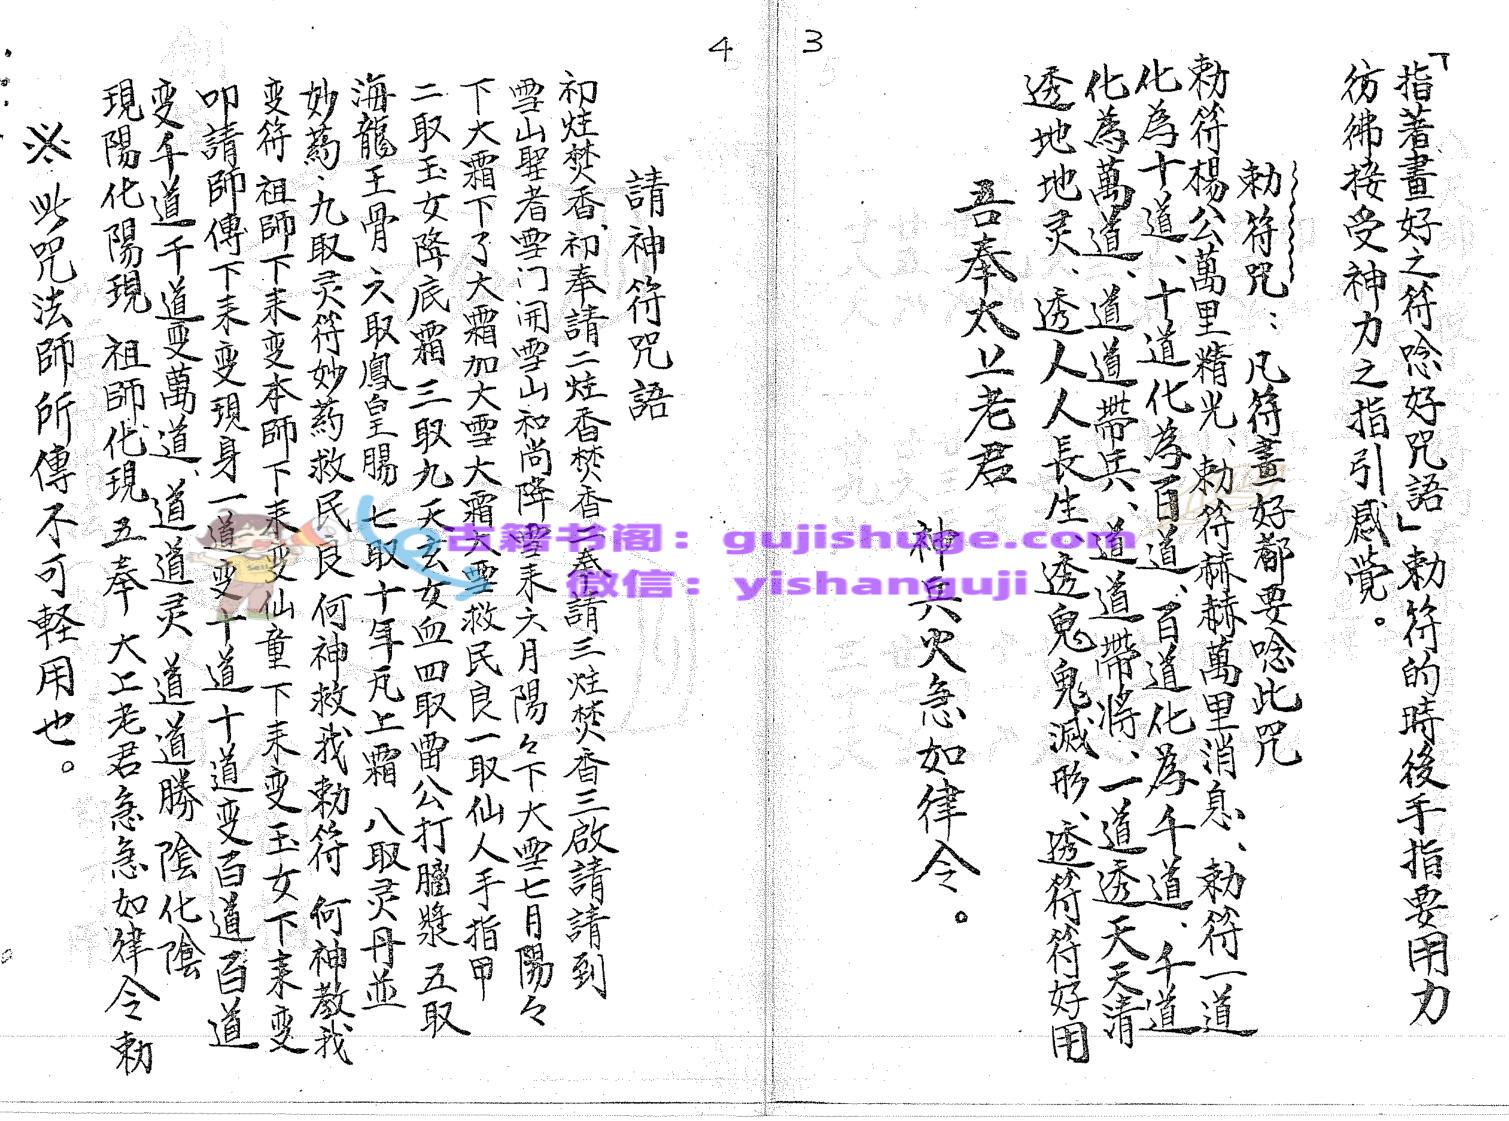 3
「指著畫好之符唸好咒語」勅符的時後手指要用力
彷彿接受神力之指引感覺。
勅符咒：凡符畫好都要唸此咒
勅符楊公萬里精光、勅符赫赫萬里消息、勅符一道
化為十道、十道化為百道、百道化為千道、千道
化為萬道、道道帶兵、道道帶將、一道透天天清
透地地灵、透人人長生、透鬼鬼滅形、透符符好用
吾奉太上老君
神兵火急如律令。
4
請神符咒語
初炷焚香、初奉請二炷香焚香二奉請三炷焚香三啟請請到
雪山聖者雪门開雪山和尚降雪来六月陽々下大雪七月陽々
下大霜下了大霜加大雪大霜大雪救民良一取仙人手指甲
二取玉女降底霜三取九天玄女血四取雷公打腦漿五取
海龍王骨六取鳳皇腸七取十年瓦上霜八取灵丹並
妙葯、九取灵符妙葯救民良何神救我勅符何神教我
变符祖師下来变本師下来变仙童下来变玉女下来变
叩請師傳下来变現身一道变十道十道变百道百道
变千道千道变萬道、道道灵道道勝陰化陰
現陽化陽現祖師化現五奉大上老君急急如律令勅
※此咒法師所傳不可軽用也。
古籍书阁：gujishuge.com
微信：yishanguji